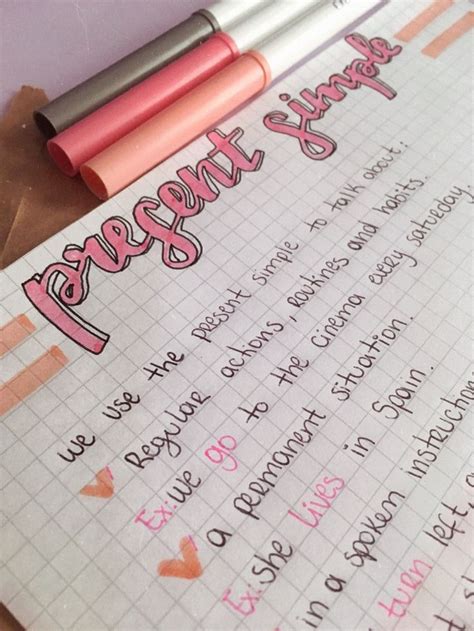 present simple
we use the present simple to talk about:
Regular actions, routines and habits.
Ex: We go to the cinema every saturday
a permanent situation.
Ex: She lives in Spain.
in a spoken instruction
turn left